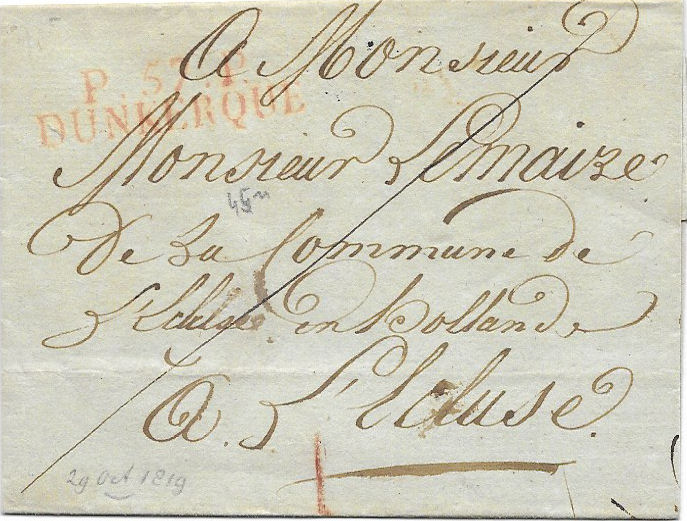 P. 57. P.
DUNKERQUE
A Monsieur
Monsieur Le maire
De La Commune de
L'Ecluse en hollande
A L'Ecluse.
29 Oct 1819